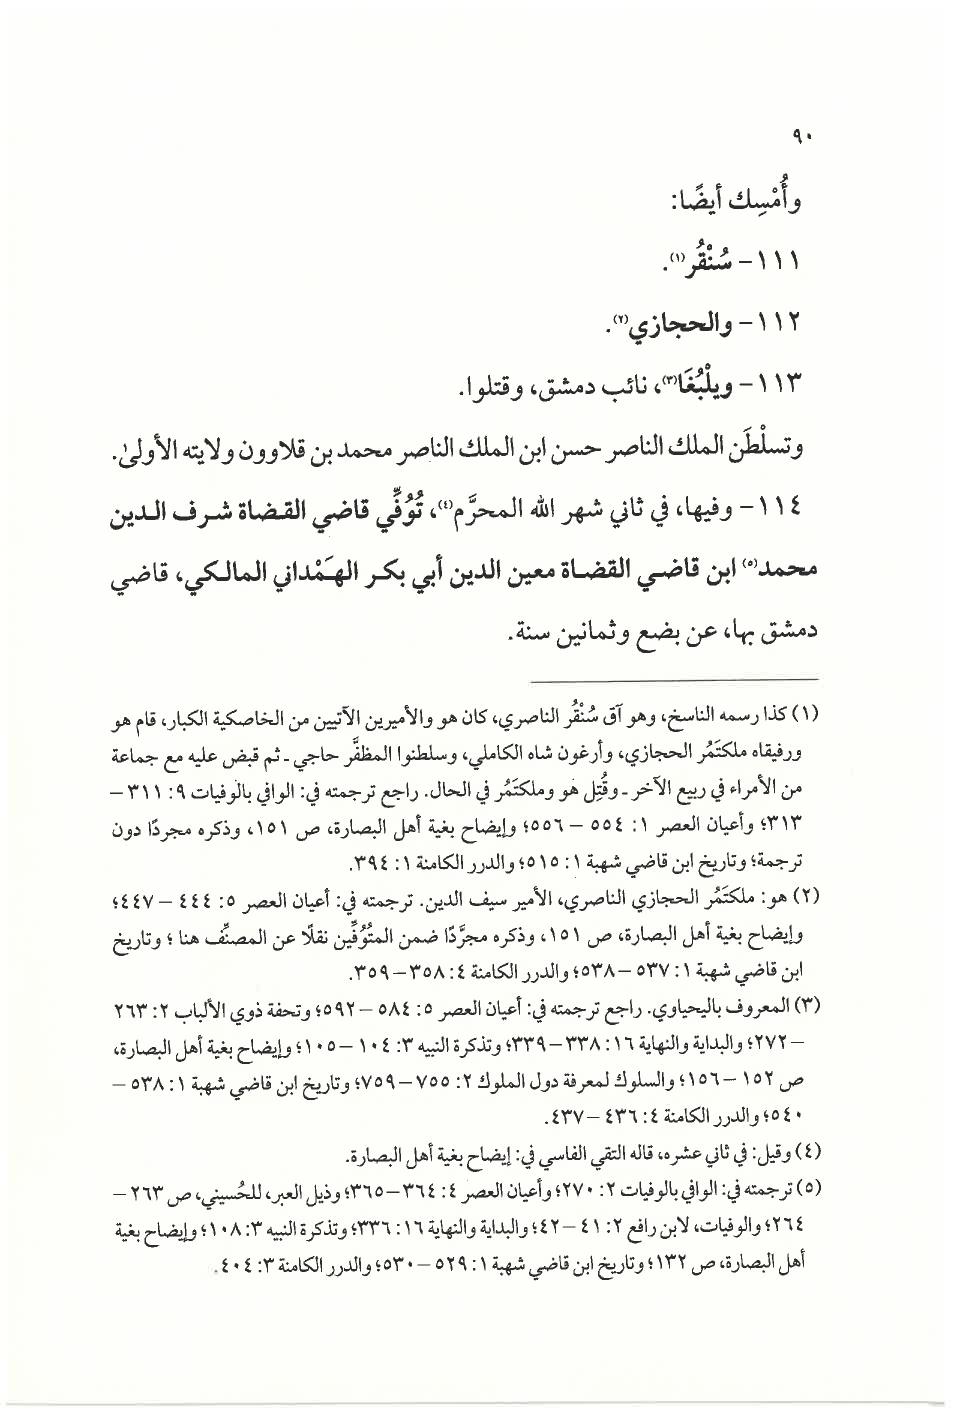 ٩٠
وأُمْسِك أيضًا:
١١١- سُنْقُر(١).
١١٢- والحجازي(٢).
١١٣- ويلْبُغَا(٣)، نائب دمشق، وقتلوا.
وتسلْطَن الملك الناصر حسن ابن الملك الناصر محمد بن قلاوون ولايته الأولىٰ.
١١٤- وفيها، في ثاني شهر الله المحرَّم(٤)، تُوُفِّي قاضي القضاة شرف الدين
محمد(٥) ابن قاضي القضاة معين الدين أبي بكر الهَمْداني المالكي، قاضي
دمشق بها، عن بضع وثمانين سنة.
(١) كذا رسمه الناسخ، وهو آق سُنْقُر الناصري، كان هو والأميرين الآتيين من الخاصكية الكبار، قام هو
ورفيقاه ملكتَمُر الحجازي، وأرغون شاه الكاملي، وسلطنوا المظفَّر حاجي ـ ثم قبض عليه مع جماعة
من الأمراء في ربيع الآخر ـ وقُتِل هو وملكتَمُر في الحال. راجع ترجمته في: الوافي بالوفيات ٩: ٣١١-
٣١٣؛ وأعيان العصر ١: ٥٥٤ - ٥٥٦؛ وإيضاح بغية أهل البصارة، ص ١٥١، وذكره مجردًا دون
ترجمة؛ وتاريخ ابن قاضي شهبة ١: ٥١٥؛ والدرر الكامنة ١: ٣٩٤.
(٢) هو: ملكتَمُر الحجازي الناصري، الأمير سيف الدين. ترجمته في: أعيان العصر ٥: ٤٤٤ - ٤٤٧؛
وإيضاح بغية أهل البصارة، ص ١٥١، وذكره مجرَّدًا ضمن المتُوُفِّين نقلًا عن المصنِّف هنا ؛ وتاريخ
ابن قاضي شهبة ١: ٥٣٧ -٥٣٨؛ والدرر الكامنة ٤: ٣٥٨-٣٥٩.
(٣) المعروف باليحياوي. راجع ترجمته في: أعيان العصر ٥: ٥٨٤ -٥٩٢؛ وتحفة ذوي الألباب ٢: ٢٦٣
-٢٧٢؛ والبداية والنهاية ١٦: ٣٣٨-٣٣٩؛ وتذكرة النبيه ٣: ١٠٤ -١٠٥؛ وإيضاح بغية أهل البصارة،
ص ١٥٢ -١٥٦؛ والسلوك لمعرفة دول الملوك ٢: ٧٥٥ -٧٥٩؛ وتاريخ ابن قاضي شهبة ١: ٥٣٨-
٥٤٠؛ والدرر الكامنة ٤: ٤٣٦ -٤٣٧.
(٤) وقيل: في ثاني عشره، قاله التقي الفاسي في: إيضاح بغية أهل البصارة.
(٥) ترجمته في: الوافي بالوفيات ٢: ٢٧٠؛ وأعيان العصر ٤: ٣٦٤-٣٦٥؛ وذيل العبر، للحُسيني، ص ٢٦٣-
٢٦٤؛ والوفيات، لابن رافع ٢: ٤١ -٤٢؛ والبداية والنهاية ١٦: ٣٣٦؛ وتذكرة النبيه ٣: ١٠٨؛ وإيضاح بغية
أهل البصارة، ص ١٣٢؛ وتاريخ ابن قاضي شهبة ١: ٥٢٩ -٥٣٠؛ والدرر الكامنة ٣: ٤٠٤.